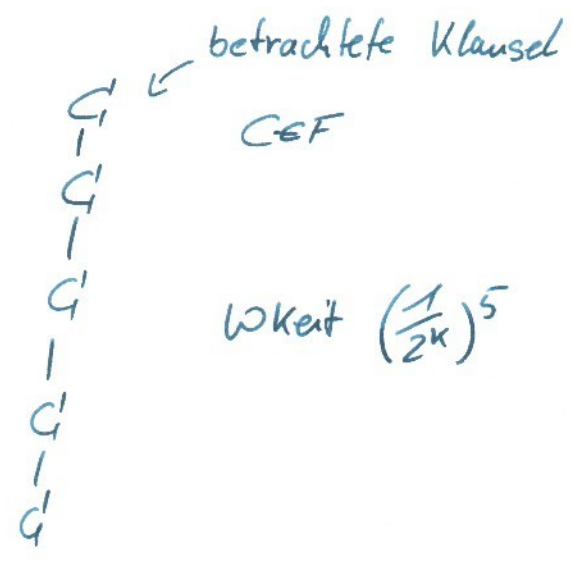 betrachtete Klausel
C
C∈F
C
C
Wkeit (1/2^k)^5
C
C